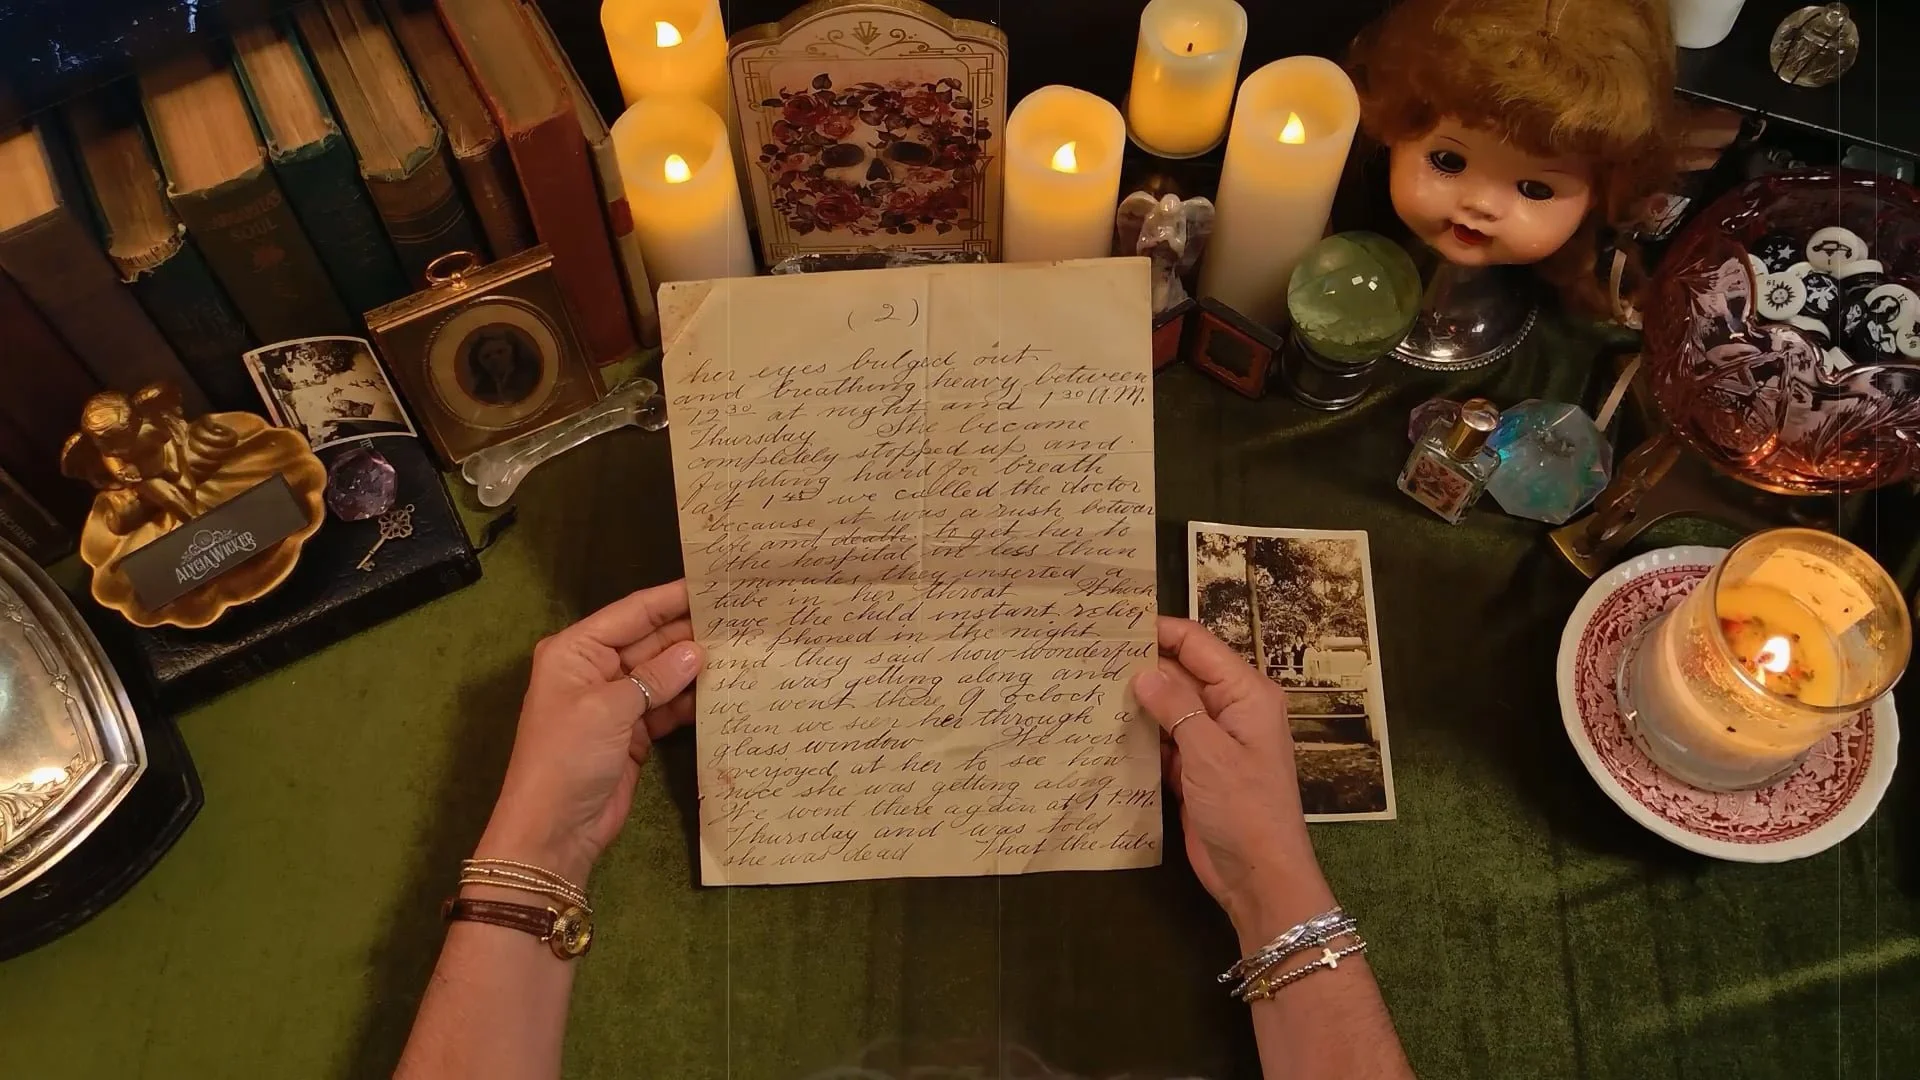 (2)
her eyes bulged out
and breathing heavy between
12³⁰ at night and 1³⁰ A.M.
Thursday She became
completely stopped up and
fighting hard for breath
at 1⁴⁵ we called the doctor
because it was a rush betwen
life and death to get her to
the hospital in less than
2 minutes they inserted a
tube in her throat Which
gave the child instant relief
We phoned in the night
and they said how wonderful
she was getting along and
we went there 9 oclock
then we seen her through a
glass window We were
overjoyed at her to see how
nice she was getting along
We went there again at 1 P.M.
Thursday and was told
she was dead That the tube
ALYCIA WICKER
SOUL